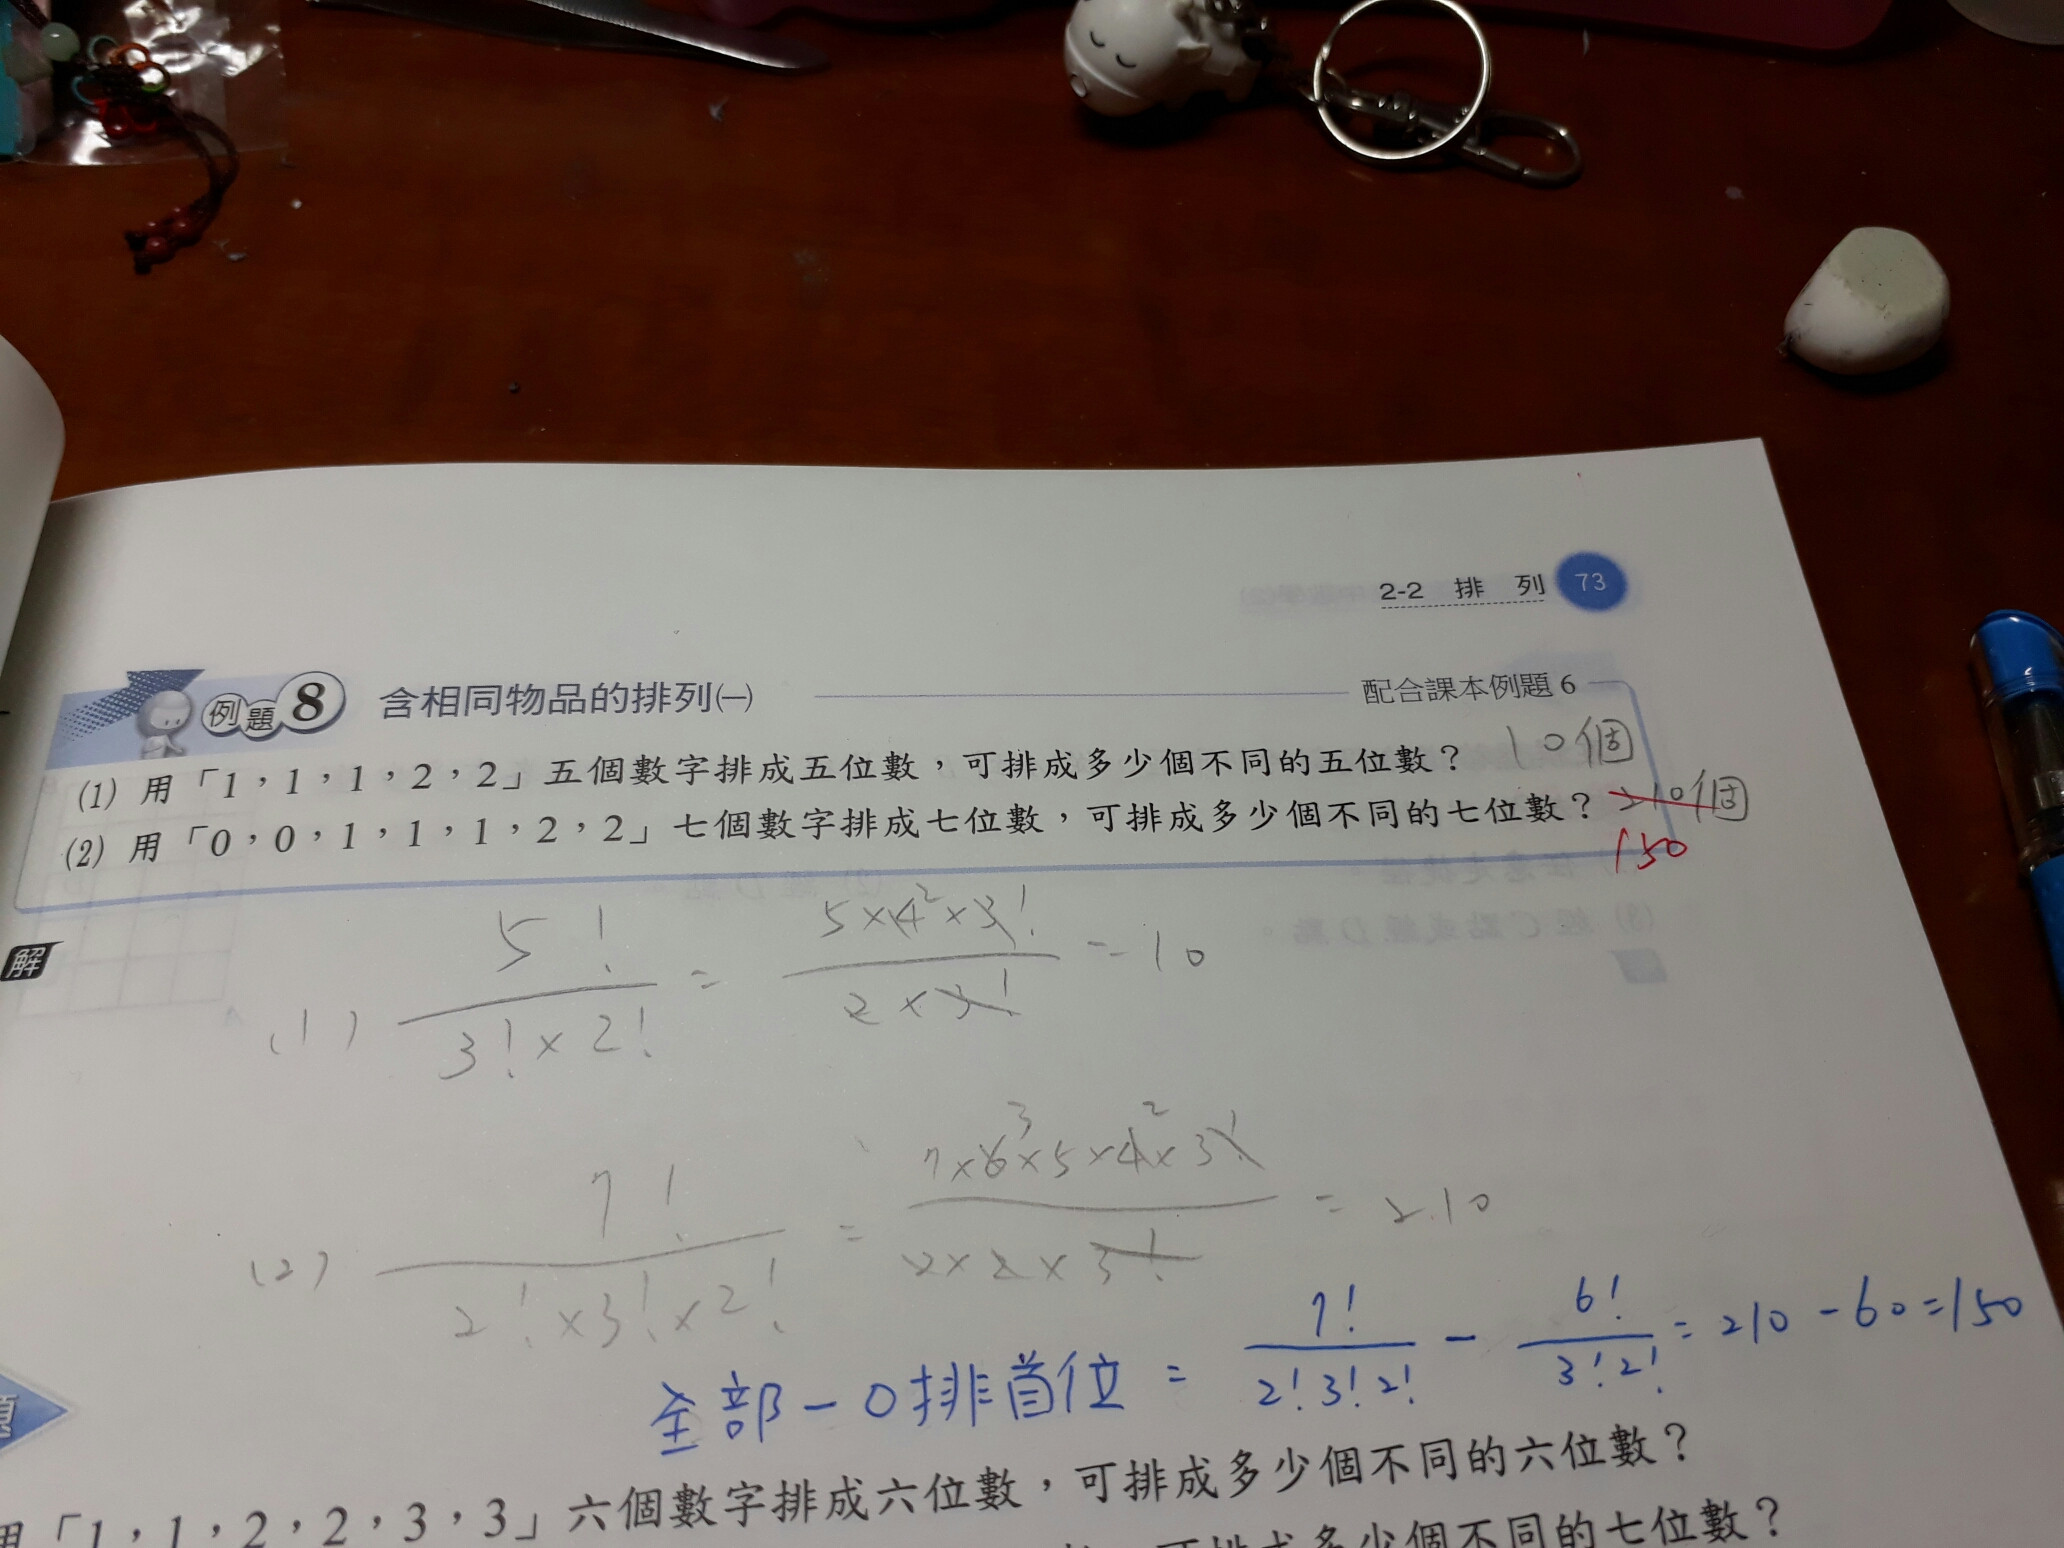 2-2 排 列 73
例題8 含相同物品的排列㈠ 配合課本例題6
(1) 用「1，1，1，2，2」五個數字排成五位數，可排成多少個不同的五位數？ 10個
(2) 用「0，0，1，1，1，2，2」七個數字排成七位數，可排成多少個不同的七位數？ 210個
150
解
(1) 5!/(3!×2!) = (5×4²×3!)/(2×3!) = 10
(2) 7!/(2!×3!×2!) = (7×6³×5×4²×3!)/(2×2×3!) = 210
全部－0排首位 = 7!/(2!3!2!) － 6!/(3!2!) = 210－60=150
題
用「1，1，2，2，3，3」六個數字排成六位數，可排成多少個不同的六位數？
可排成多少個不同的七位數？